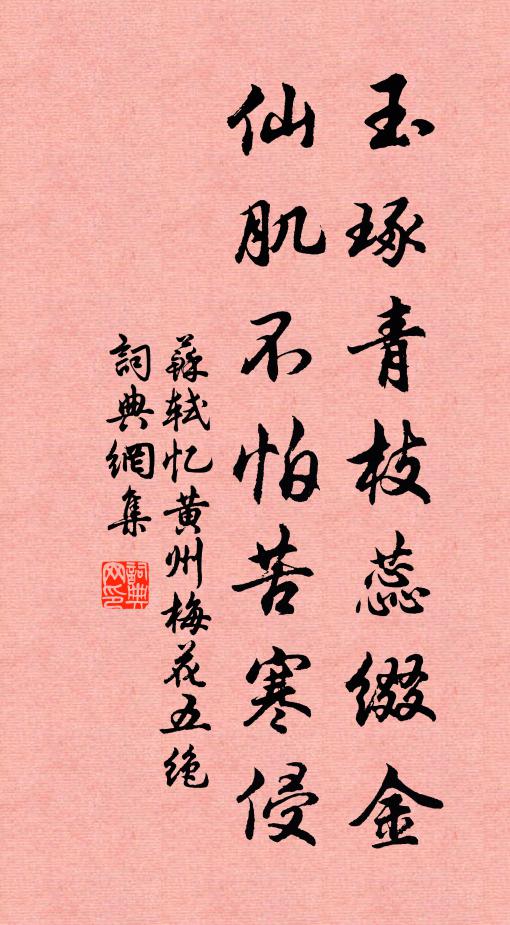 玉琢青枝蕊缀金
仙肌不怕苦寒侵
蘇軾忆黄州梅花五绝
詞典網集
詞典
网印